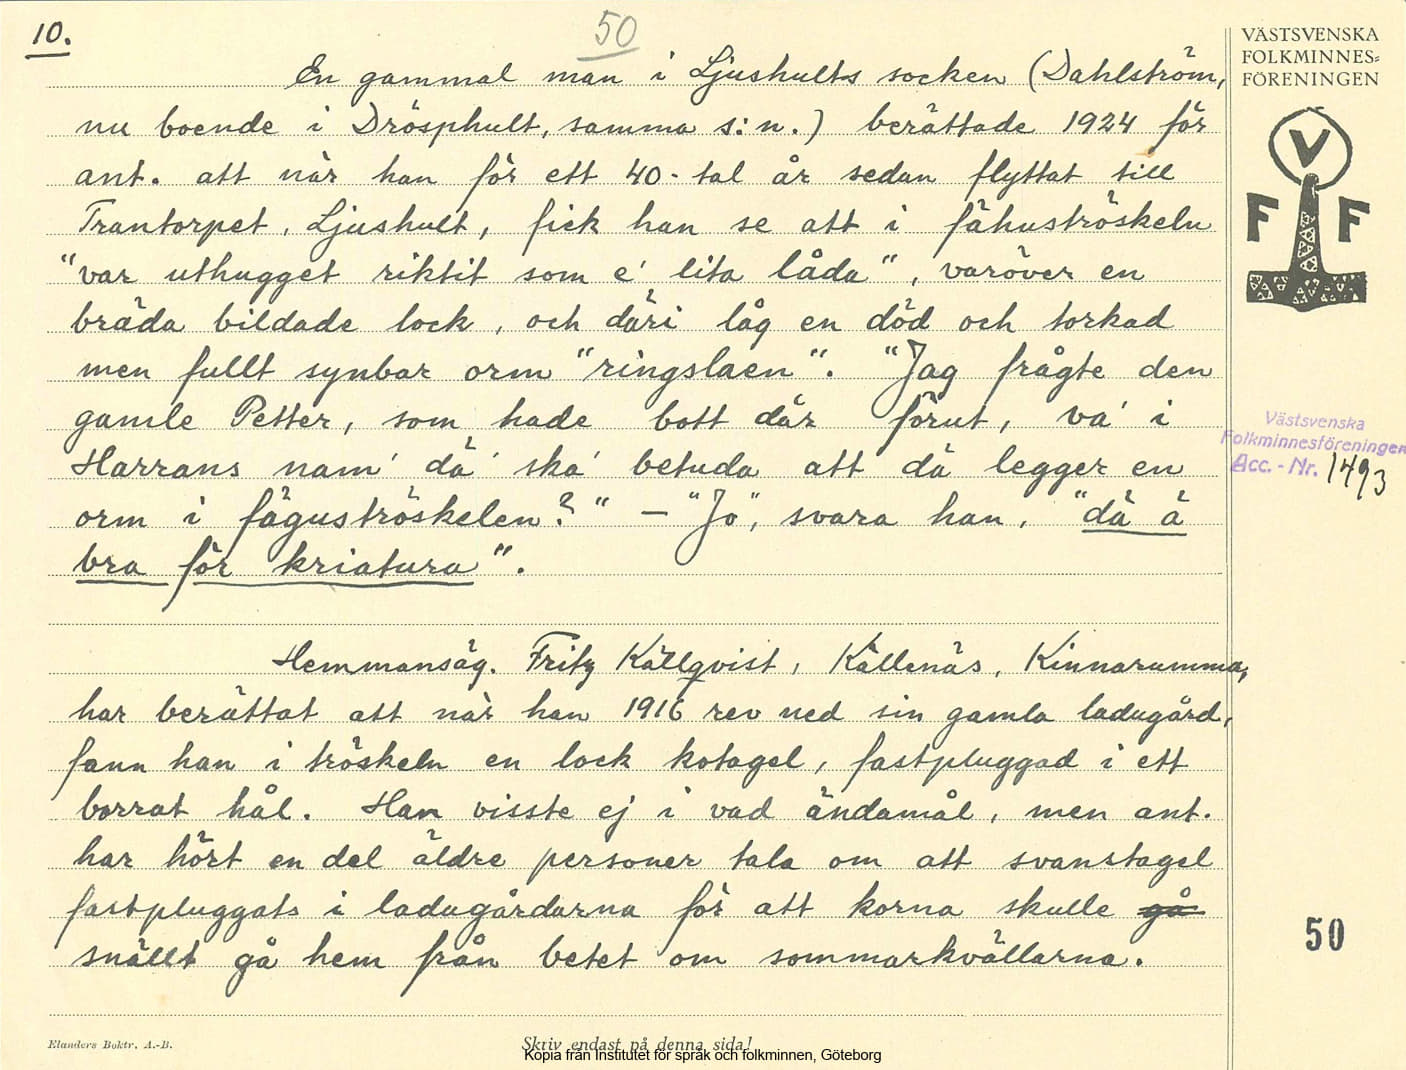 10.
50
VÄSTSVENSKA
FOLKMINNES=
FÖRENINGEN
V
F F
En gammal man i Ljushults socken (Dahlström,
nu boende i Drösphult, samma s:n.) berättade 1924 för
ant. att när han för ett 40-tal år sedan flyttat till
Trantorpet, Ljushult, fick han se att i fähuströskeln
"var uthugget riktit som e' lita låda", varöver en
bräda bildade lock, och däri låg en död och torkad
men fullt synbar orm "ringslaen". "Jag frågte den
gamle Petter, som hade bott där förut, va' i
Harrans nam' dä' ska' betuda att dä legger en
orm i fäguströskelen?" — "Jo", svara han, "dä ä
bra för kriatura".
Västsvenska
Folkminnesföreningen
Acc.-Nr. 1493
Hemmansäg. Fritz Källqvist, Källenäs, Kinnarumma,
har berättat att när han 1916 rev ned sin gamla ladugård,
fann han i tröskeln en lock kotagel, fastpluggad i ett
borrat hål. Han visste ej i vad ändamål, men ant.
har hört en del äldre personer tala om att svanstagel
fastpluggats i ladugårdarna för att korna skulle gå
snällt gå hem från betet om sommarkvällarna.
50
Elanders Boktr. A.-B.
Skriv endast på denna sida!
Kopia från Institutet för språk och folkminnen, Göteborg